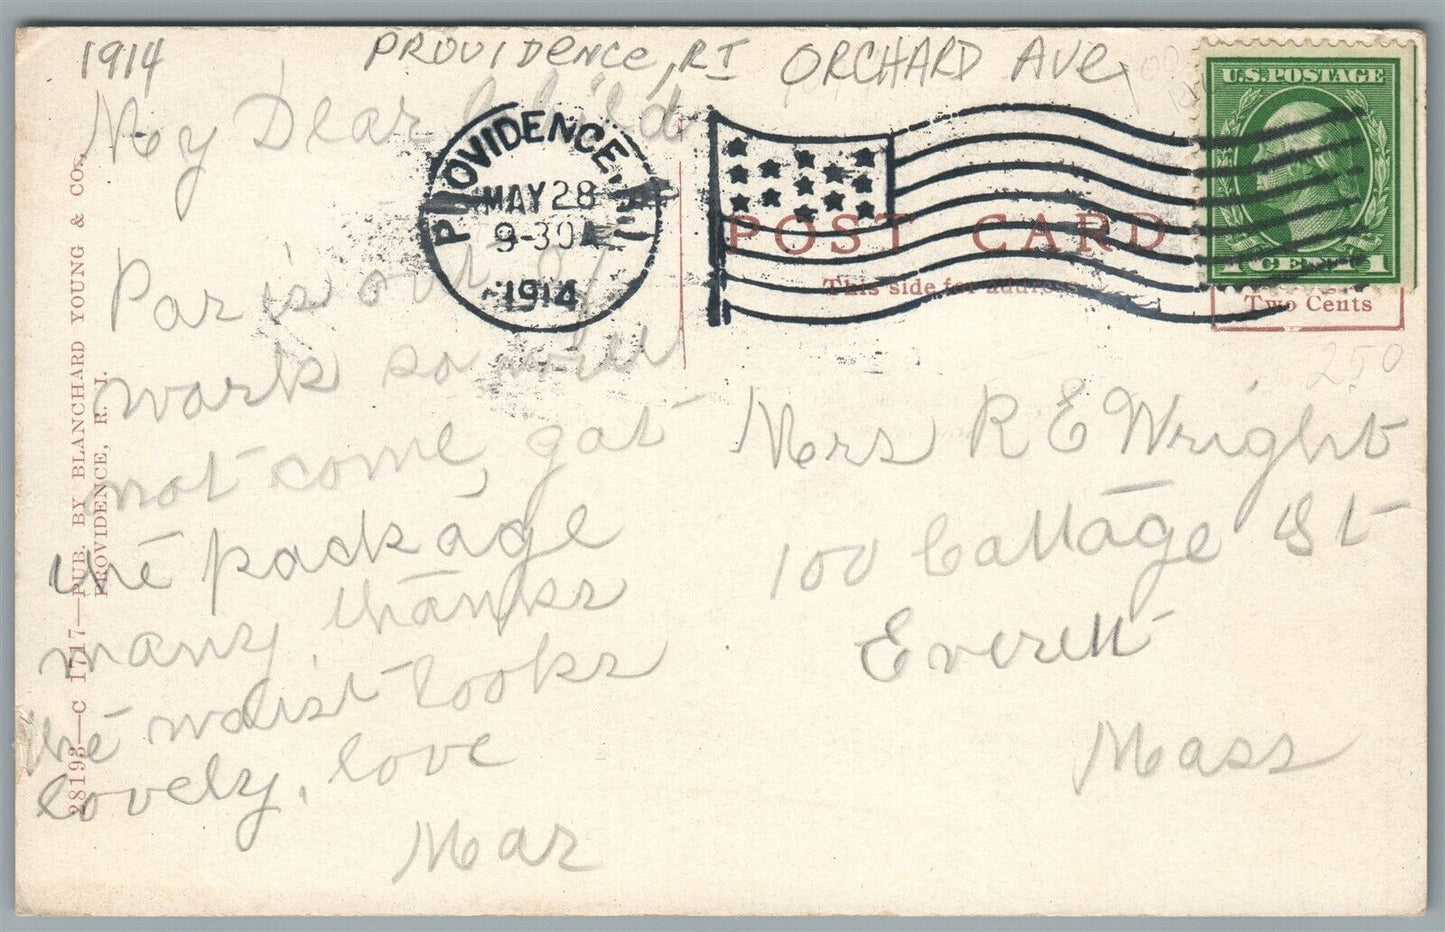 1914
PROVIDENCE, RI ORCHARD AVE
My Dear Child
Par is out of
work so will
not come, got
the package
many thanks
the waist looks
lovely, love
Mar
PROVIDENCE, R.I.
MAY 28
9-30A
1914
POST CARD
This side for address
U.S. POSTAGE
1 CENT 1
Two Cents
250
Mrs R E Wright
100 Cottage St
Everett
Mass
28193—C 1717—PUB. BY BLANCHARD YOUNG & CO.,
PROVIDENCE, R. I.